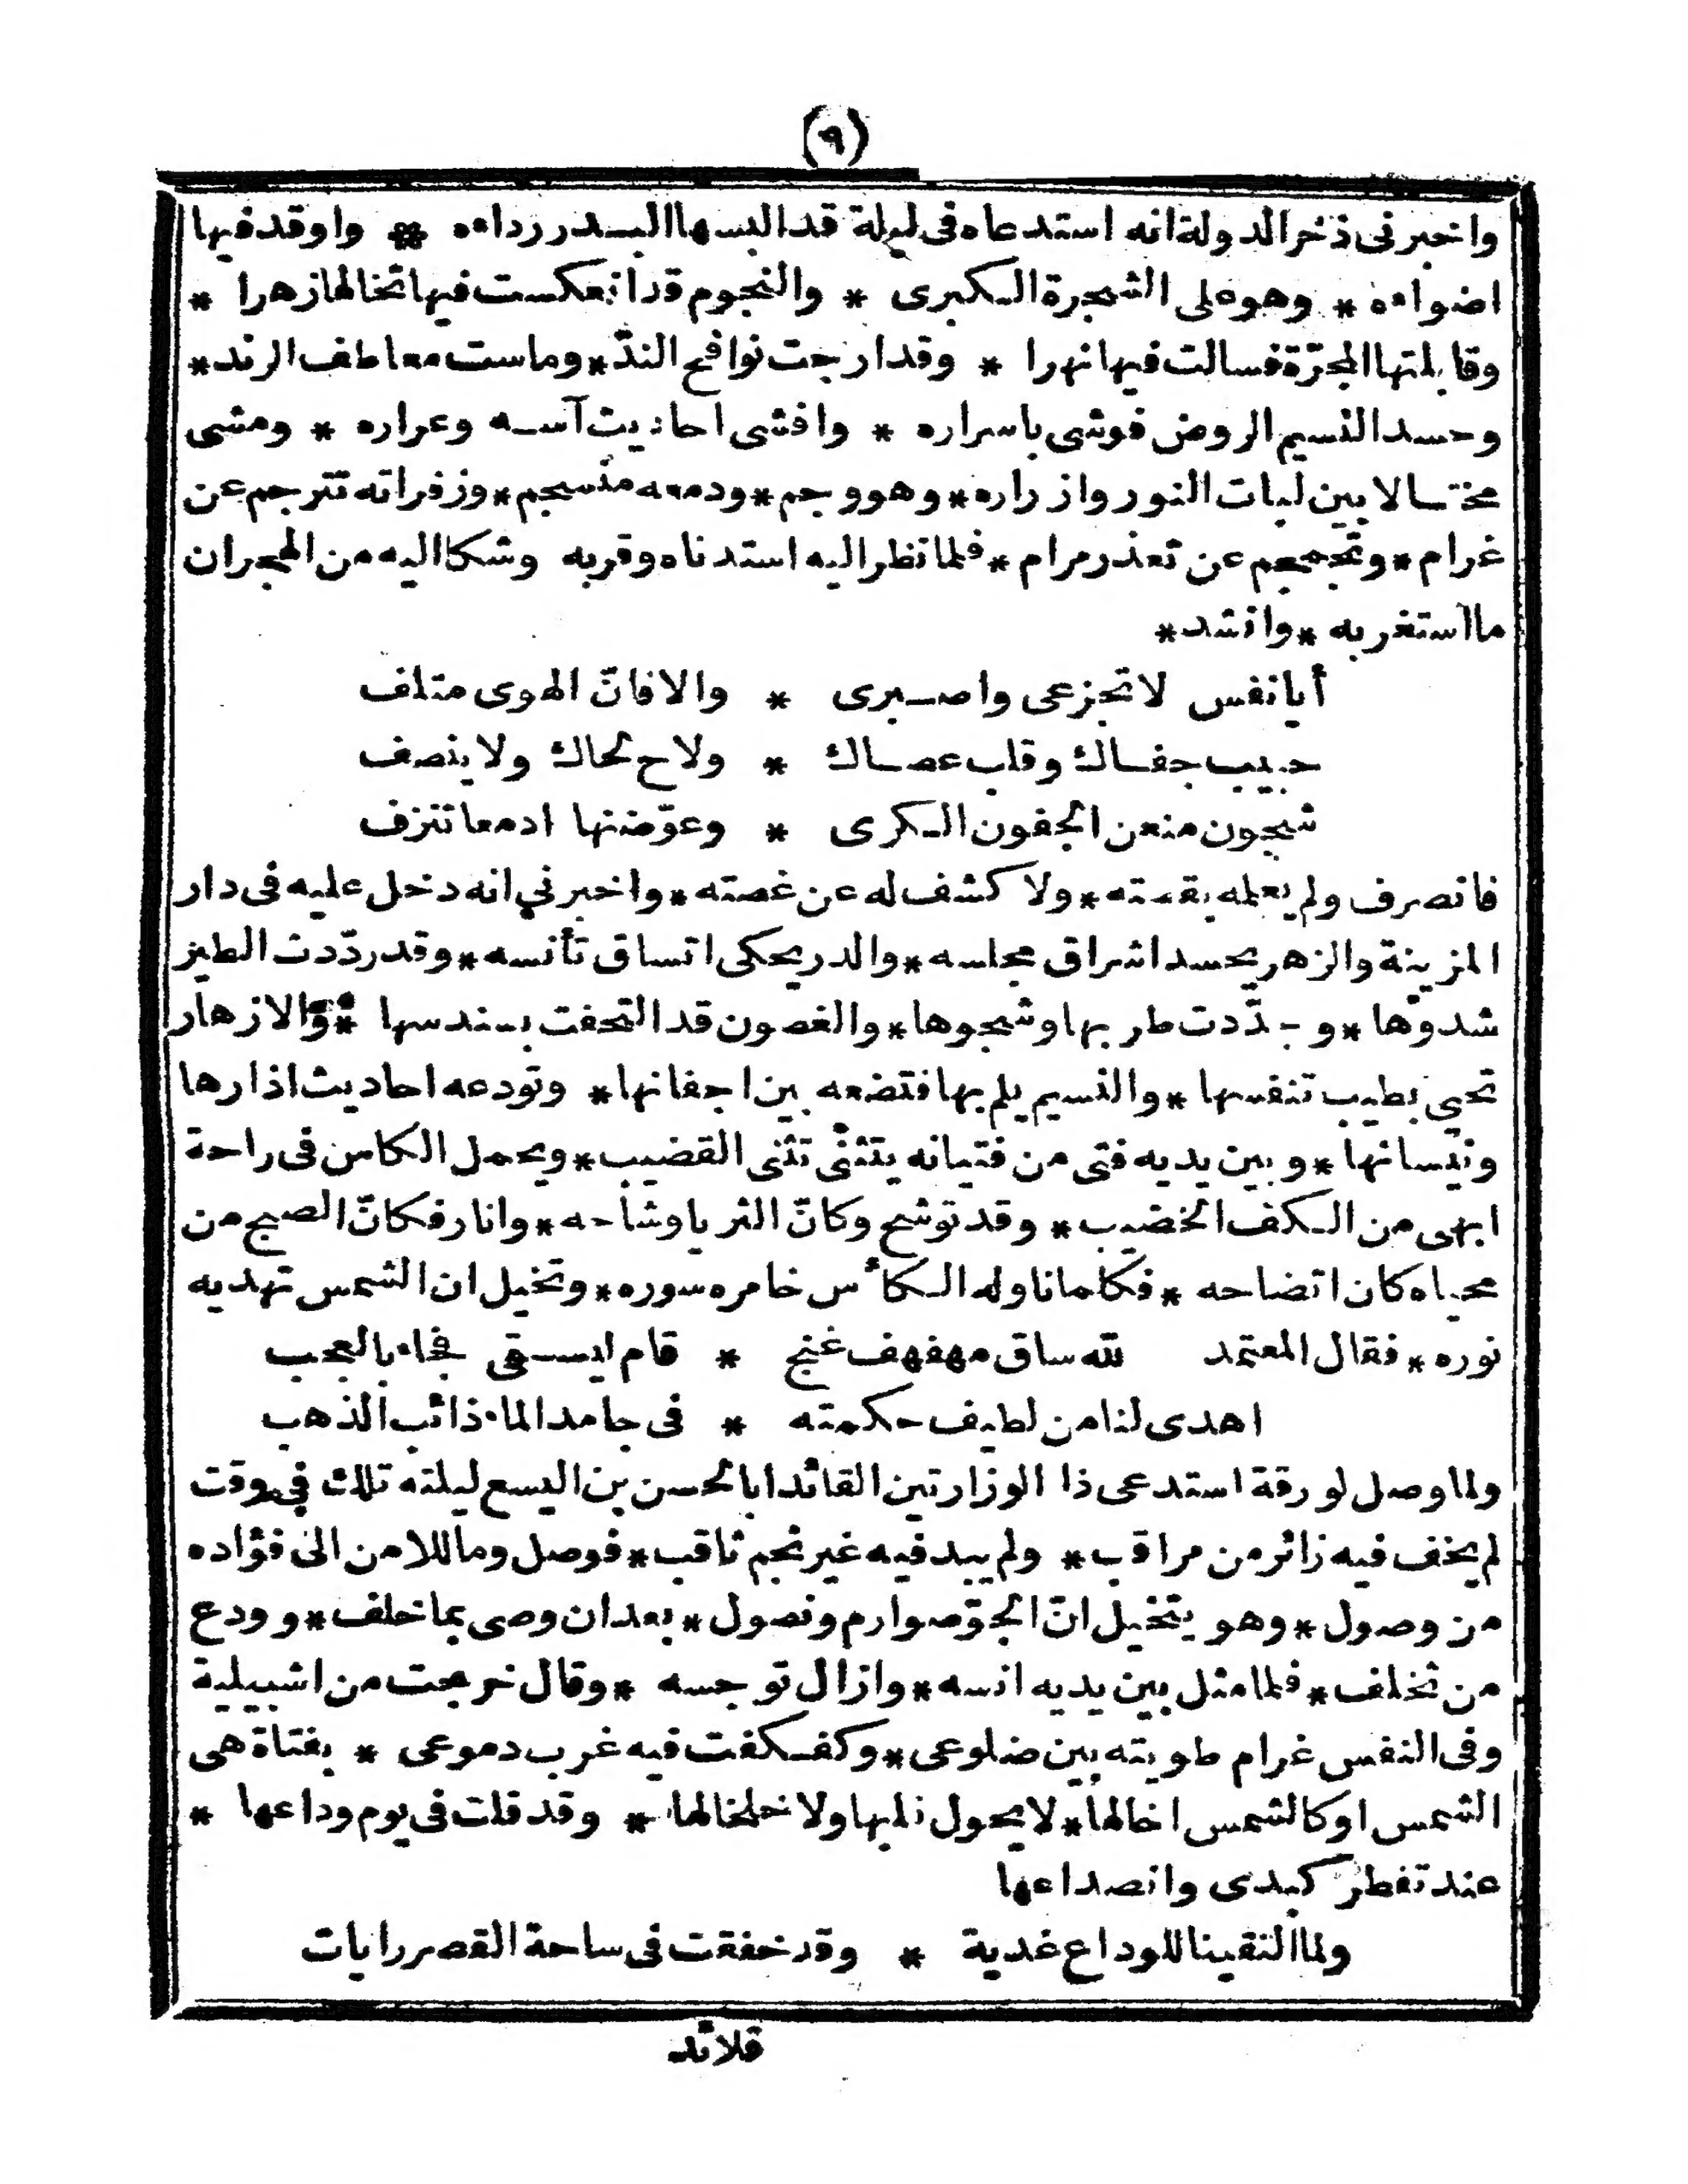 (٩)
واخبرنى ذخرالدولة انه استدعاه فى ليلة قد البسها البدر رداءه * واوقد فيها
اضواءه * وهو على الشجرة الكبرى * والنجوم قد انعكست فيها تخالها زهرا *
وقابلتها المجرّة فسالت فيها نهرا * وقد ارجت نوافح الندّ * وماست معاطف الرند *
وحسد النسيم الروض فوشى باسراره * وافشى احاديث آسه وعراره * ومشى
مختالا بين لبات النور وازراره * وهو وجم * ودمعه منسجم * وزفراته تترجم عن
غرام * وتجمجم عن تعذر مرام * فلما نظر اليه استدناه وقربه وشكا اليه من الهجران
ما استغربه * وانشد *
أيا نفس لا تجزعى واصبرى * والا فانّ الهوى متلف
حبيب جفاك وقلب عصاك * ولاح لحاك ولا ينصف
شجون منعن الجفون الكرى * وعوّضنها ادمعا تنزف
فانصرف ولم يعلمه بقصته * ولا كشف له عن غصته * واخبرني انه دخل عليه فى دار
المزينة والزهر يحسد اشراق مجلسه * والدر يحكى اتساق تأنسه * وقد ردّدت الطير
شدوها * وجدّدت طربها وشجوها * والغصون قد التحفت بسندسها * والازهار
تحيي بطيب تنفسها * والنسيم يلم بها فتضعه بين اجفانها * وتودعه احاديث اذارها
ونيسانها * وبين يديه فتى من فتيانه يتثنى تثنى القضيب * ويحمل الكاس فى راحة
ابهى من الكف الخضيب * وقد توشح وكانّ الثريا وشاحه * وانار فكانّ الصبح من
محياه كان اتضاحه * فكلما ناوله الكأس خامره سوره * وتخيل ان الشمس تهديه
نوره * فقال المعتمد لله ساق مهفهف غنج * قام ليسقى فجاء بالعجب
اهدى لنا من لطيف حكمته * فى جامد الماء ذائب الذهب
ولما وصل لورقة استدعى ذا الوزارتين القائد ابا الحسن بن اليسع ليلته تلك في وقت
لم يخف فيه زائر من مراقب * ولم يبد فيه غير نجم ثاقب * فوصل وما للامن الى فؤاده
من وصول * وهو يتخيل انّ الجوّ صوارم ونصول * بعد ان وصى بما خلف * وودع
من تخلف * فلما مثل بين يديه انسه * وازال توجسه * وقال خرجت من اشبيلية
وفى النفس غرام طويته بين ضلوعى * وكفكفت فيه غرب دموعى * بفتاة هى
الشمس او كالشمس اخالها * لا يحول قلبها ولا خلخالها * وقد قلت فى يوم وداعها *
عند تفطر كبدى وانصداعها
ولما التقينا للوداع غدية * وقد خفقت فى ساحة القصر رايات
قلائد